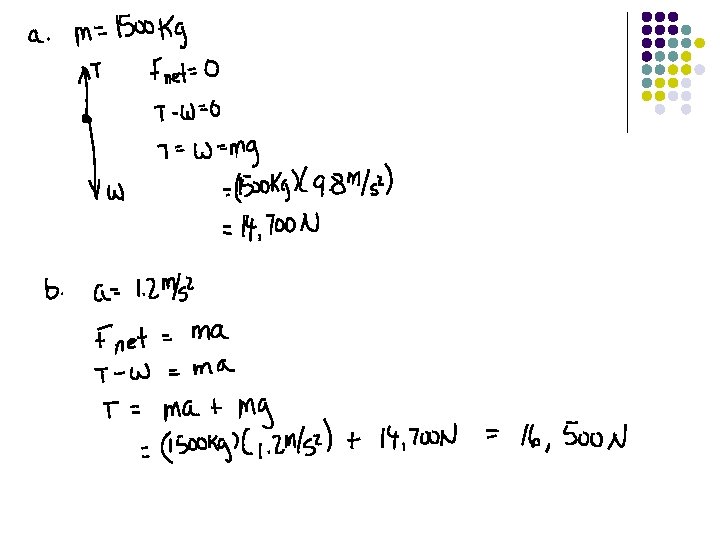 a. m=1500Kg
T Fnet=0
T-W=0
T=W=mg
W =(1500Kg)(9.8m/s²)
=14,700N
b. a=1.2m/s²
Fnet = ma
T-W = ma
T = ma + mg
=(1500Kg)(1.2m/s²) + 14,700N = 16,500N